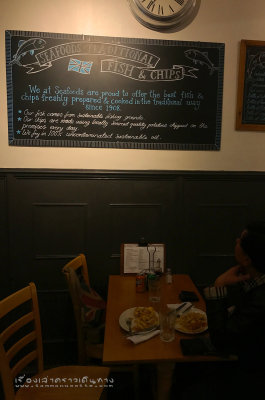 SEAFOODS TRADITIONAL
FISH & CHIPS
We at Seafoods are proud to offer the best fish &
chips freshly prepared & cooked in the traditional way
since 1908.
★ Our fish comes from sustainable fishing grounds.
★ Our chips are made using locally sourced quality potatoes chipped on the
premises every day.
★ We fry in 100% uncontaminated sustainable oil.